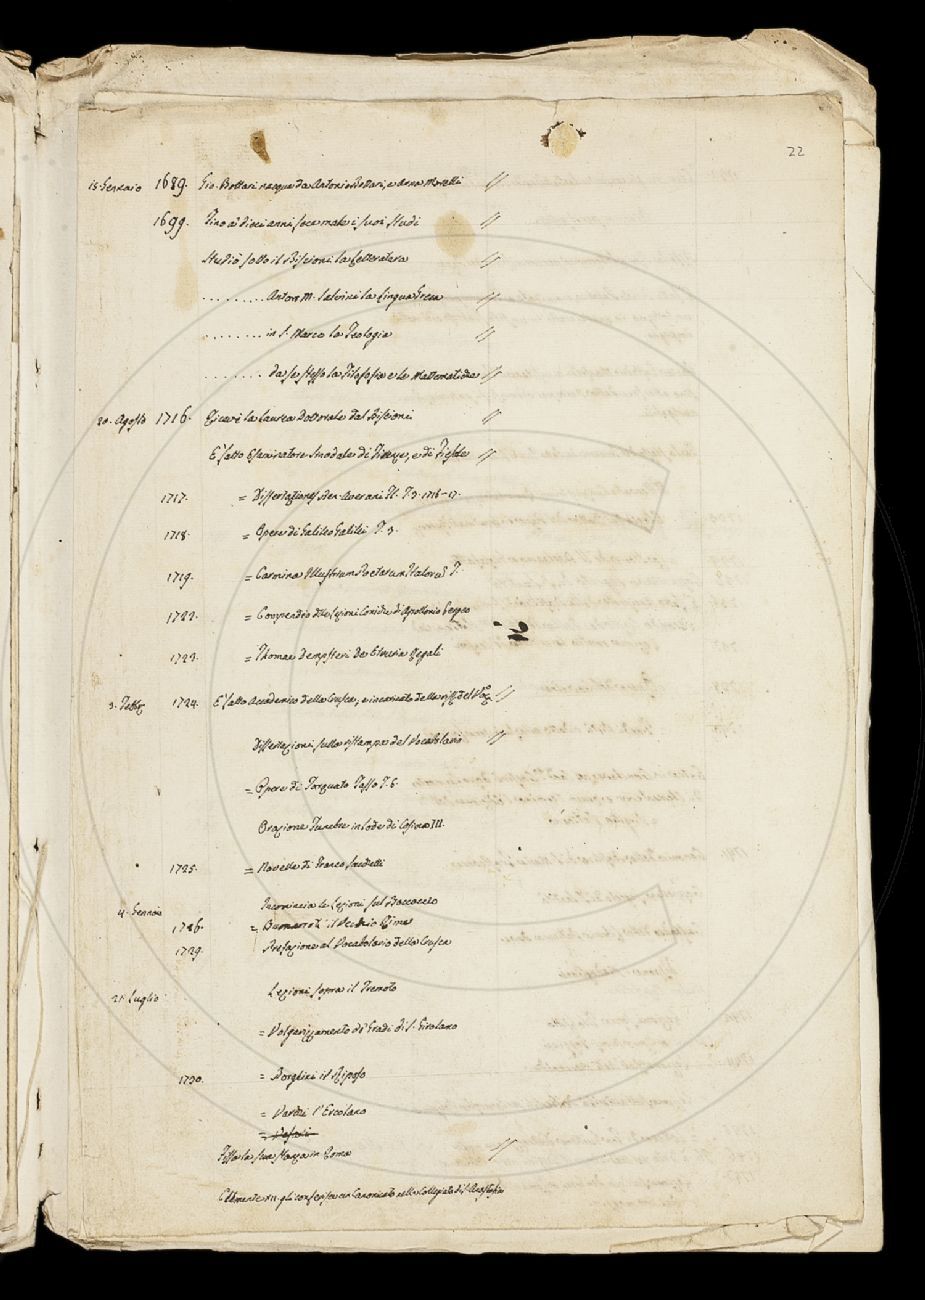 22
15 Gennaio 1689. Gio. Bottari nacque da Antonio Bottari, e Anna Morelli //
1699. Fino a' dieci anni fece male i suoi studi //
Studiò sotto il Biscioni la Letteratura //
......... Anton M. Salvini la Lingua Greca //
........ in S. Marco la Teologia //
........ da se stesso la Filosofia e le Mattematiche //
20. Agosto 1716. Ricevè la laurea Dottorale dal Biscioni //
E' fatto Esaminatore Sinodale di Firenze, e di Fiesole //
1717. = Dissertationes Averani T. 3. 1716-17.
1718. = Opere di Galileo Galilei T. 3.
1719. = Carmina Illustrium Poetarum Italorũ T.
1722. = Compendio delle Lezioni Coniche di Apollonio Pergeo
1723. = Thomae Dempsteri De Etruria Regali
3. 1724. E' fatto Accademico della Crusca, e incaricato della del Voc. //
sulla ristampa del Vocabolario //
= Opere di Torquato Tasso T. 6
Orazione Funebre in lode di Cosimo III.
1725. = Novelle di Franco Sacchetti
Incomincia le Lezioni sul Boccaccio
4. Gennaio
1726. = Buonarroti il Vecchio Rime
1729. Prefazione al Vocabolario della Crusca
21 Luglio Lezioni sopra il Tremoto
= Volgarizzamento de' Gradi di S. Girolamo
1730. = Borghini il Riposo
= Varchi l'Ercolano
= Vasari
Fissa la sua stanza in Roma //
Clemente XII. gli conferisce un Canonicato nella Collegiata di S. Anastasia